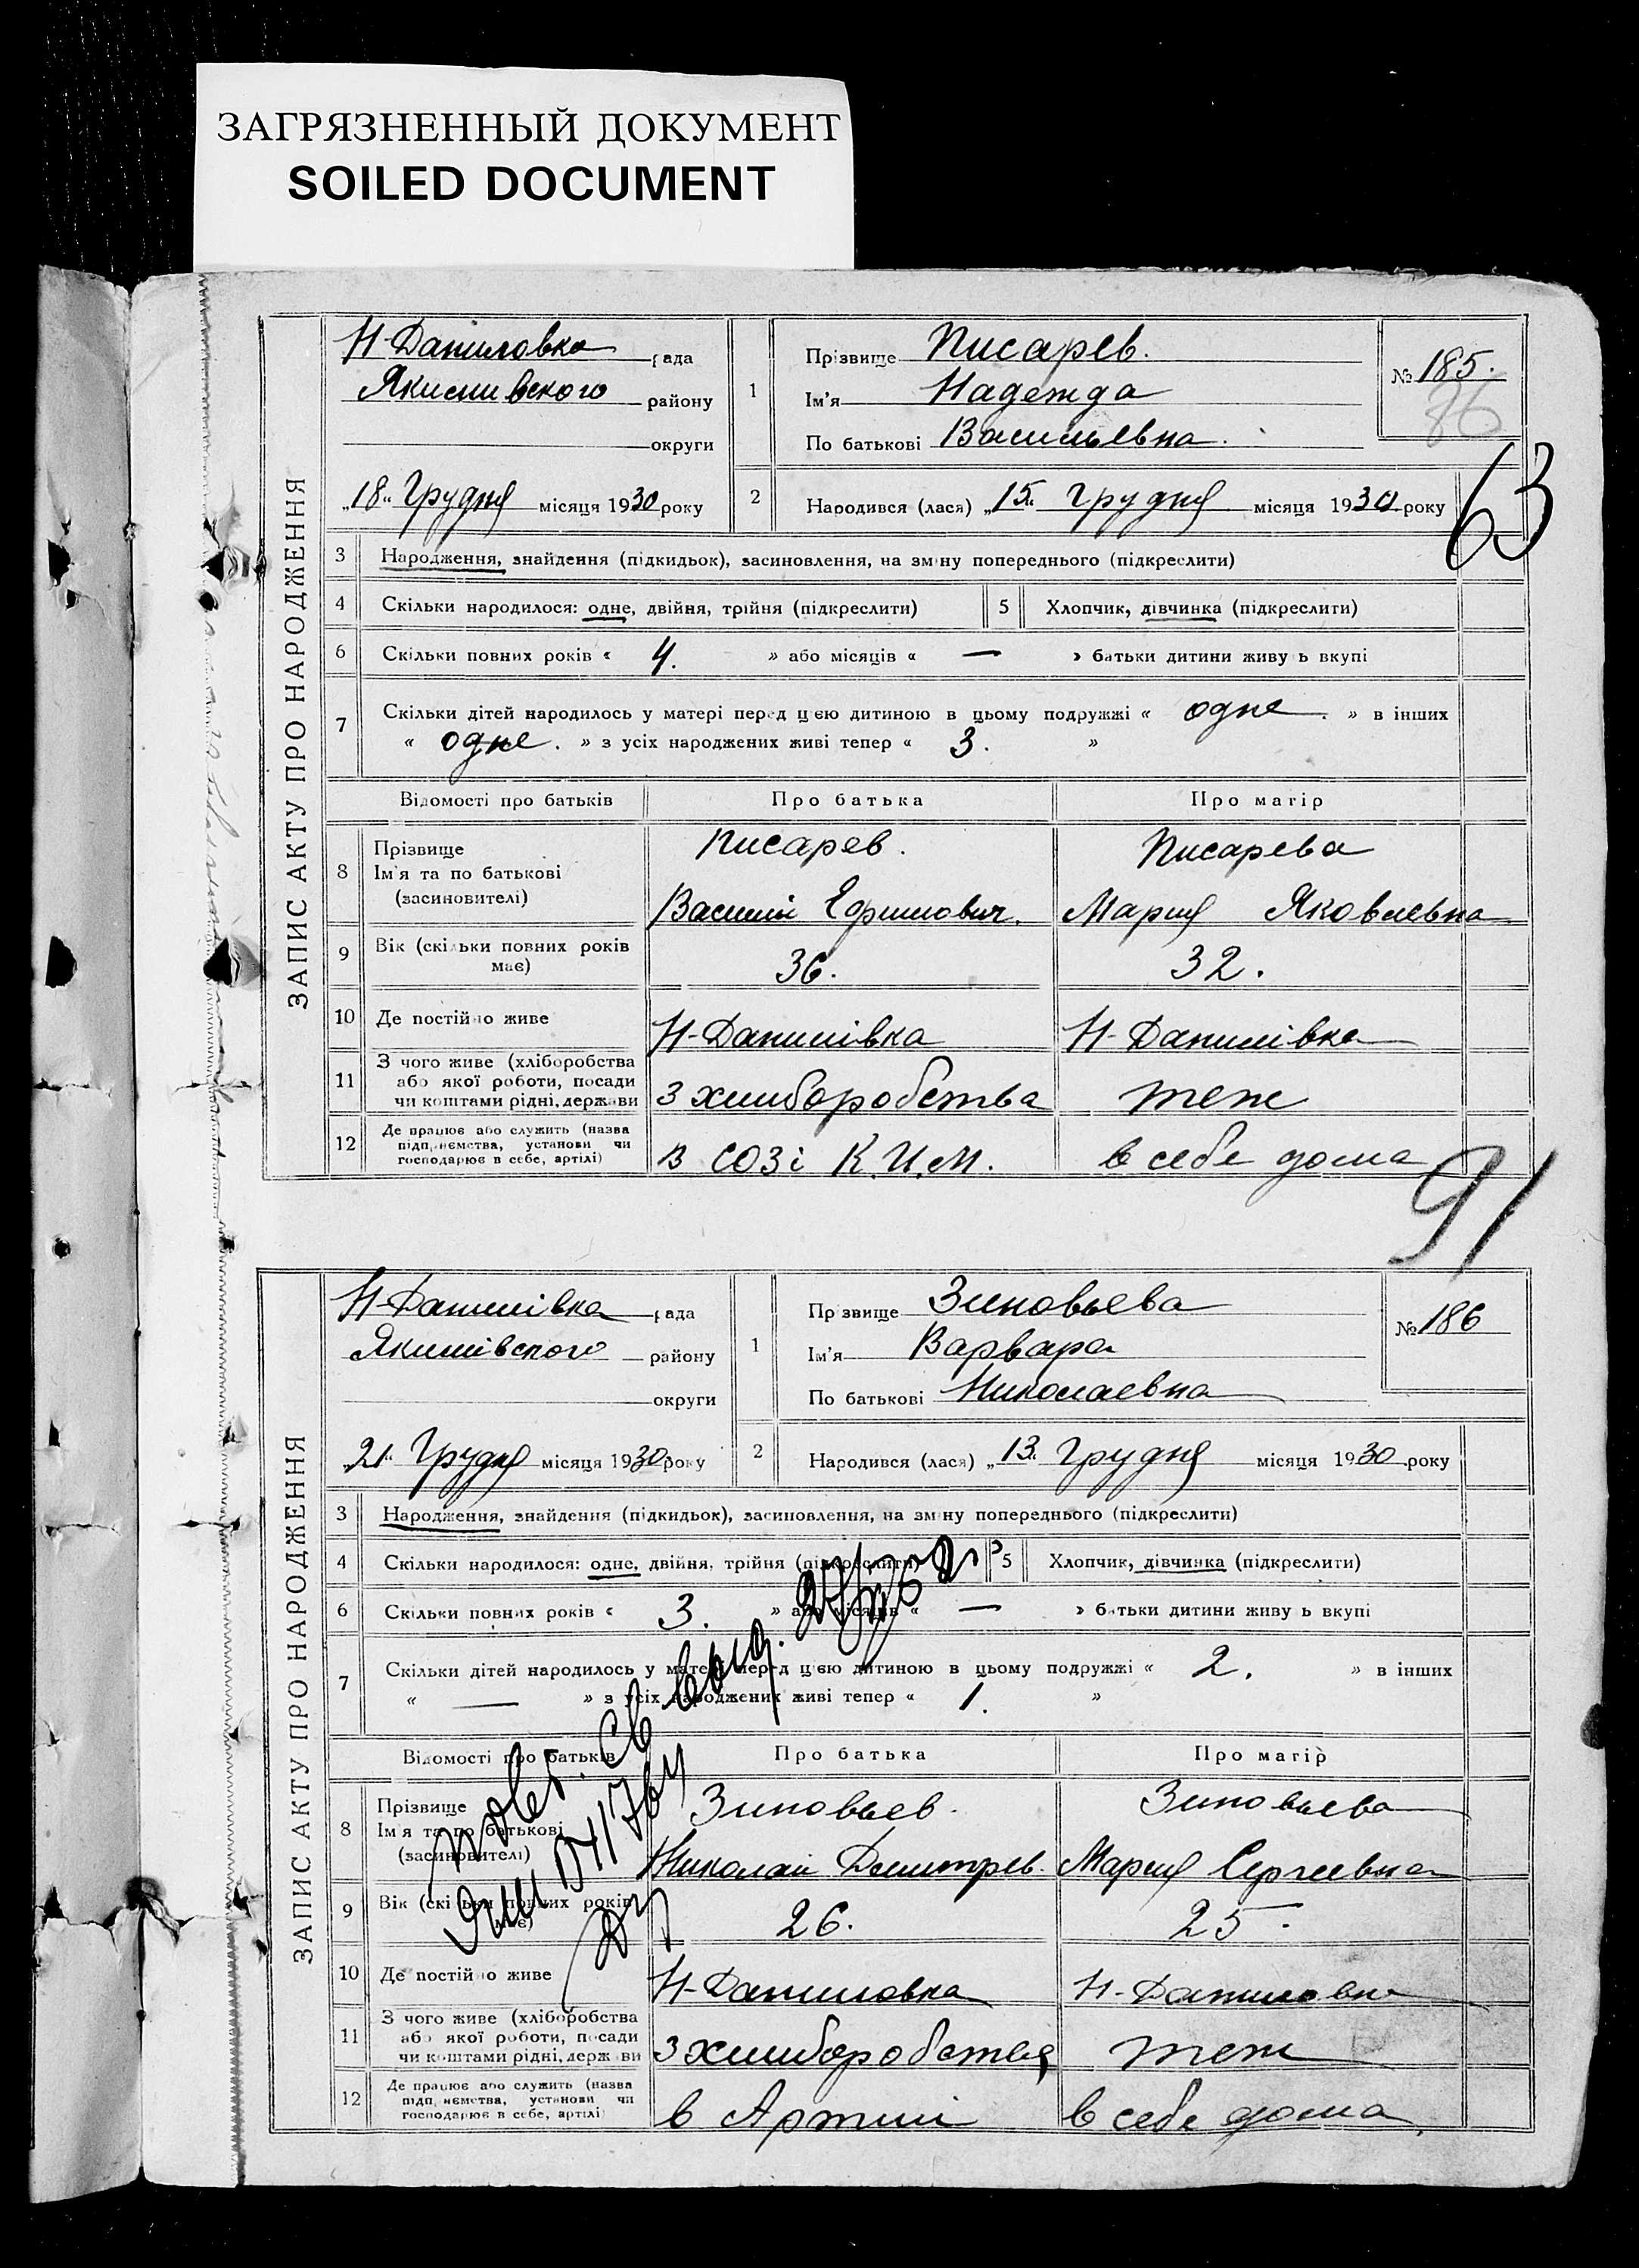 ЗАГРЯЗНЕННЫЙ ДОКУМЕНТ
SOILED DOCUMENT
ЗАПИС АКТУ ПРО НАРОДЖЕННЯ
Н-Даниловка рада
Якимивского району
округи
„18“ Грудня місяця 1930 року
1
Прізвище Писарев.
Ім'я Надежда
По батькові Васильевна.
№ 185.
86
63
2
Народився (лася) „15“ грудня місяця 1930 року
3 Народження, знайдення (підкидьок), засиновлення, на зміну попереднього (підкреслити)
4 Скільки народилося: одне, двійня, трійня (підкреслити) 5 Хлопчик, дівчинка (підкреслити)
6 Скільки повних років « 4. » або місяців « — » батьки дитини живуть вкупі
7 Скільки дітей народилось у матері перед цією дитиною в цьому подружжі « одне. » в інших
« одне. » з усіх народжених живі тепер « 3. »
Відомості про батьків Про батька Про матір
8 Прізвище Писарев. Писарева
Ім'я та по батькові
(засиновителі) Василий Ефимович. Мария Яковлевна
9 Вік (скільки повних років
має) 36. 32.
10 Де постійно живе Н-Данилівка Н-Данилівка
11 З чого живе (хліборобства
або якої роботи, посади
чи коштами рідні, держави З хлиборобства теж
12 Де працює або служить (назва
підприємства, установи чи
господарює в себе, артілі) в СОЗі К.И.М. в себе дома
91
ЗАПИС АКТУ ПРО НАРОДЖЕННЯ
Н-Данилівка рада
Якимівского району
округи
„21“ Грудня місяця 1930 року
1
Прізвище Зиновьева
Ім'я Варвара
По батькові Николаевна
№ 186
2
Народився (лася) „13“ Грудня місяця 1930 року
3 Народження, знайдення (підкидьок), засиновлення, на зміну попереднього (підкреслити)
4 Скільки народилося: одне, двійня, трійня (підкреслити) 5 Хлопчик, дівчинка (підкреслити)
6 Скільки повних років « 3. » або місяців « — » батьки дитини живуть вкупі
7 Скільки дітей народилось у матері перед цією дитиною в цьому подружжі « 2. » в інших
« — » з усіх народжених живі тепер « 1. »
Відомості про батьків Про батька Про матір
8 Прізвище Зиновьев. Зиновьева
Ім'я та по батькові
(засиновителі) Николай Дмитрев. Мария Сергеевна
9 Вік (скільки повних років
має) 26. 25.
10 Де постійно живе Н-Даниловка Н-Даниловка
11 З чого живе (хліборобства
або якої роботи, посади
чи коштами рідні, держави З хлиборобства теж
12 Де працює або служить (назва
підприємства, установи чи
господарює в себе, артілі) в Артилі в себе дома